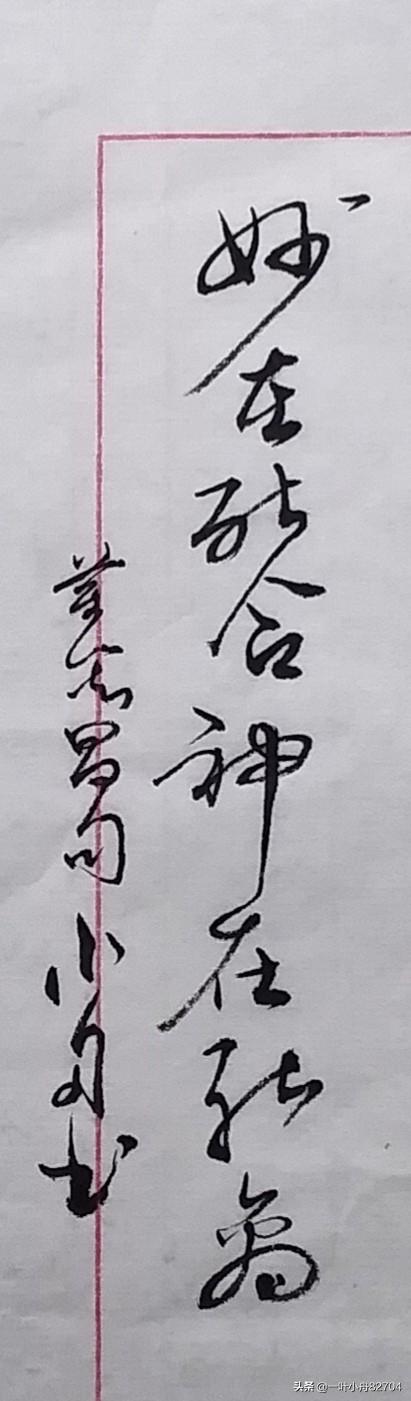 妙在能合神在能离
董其昌句 小舟书
头条 @一叶小舟82704